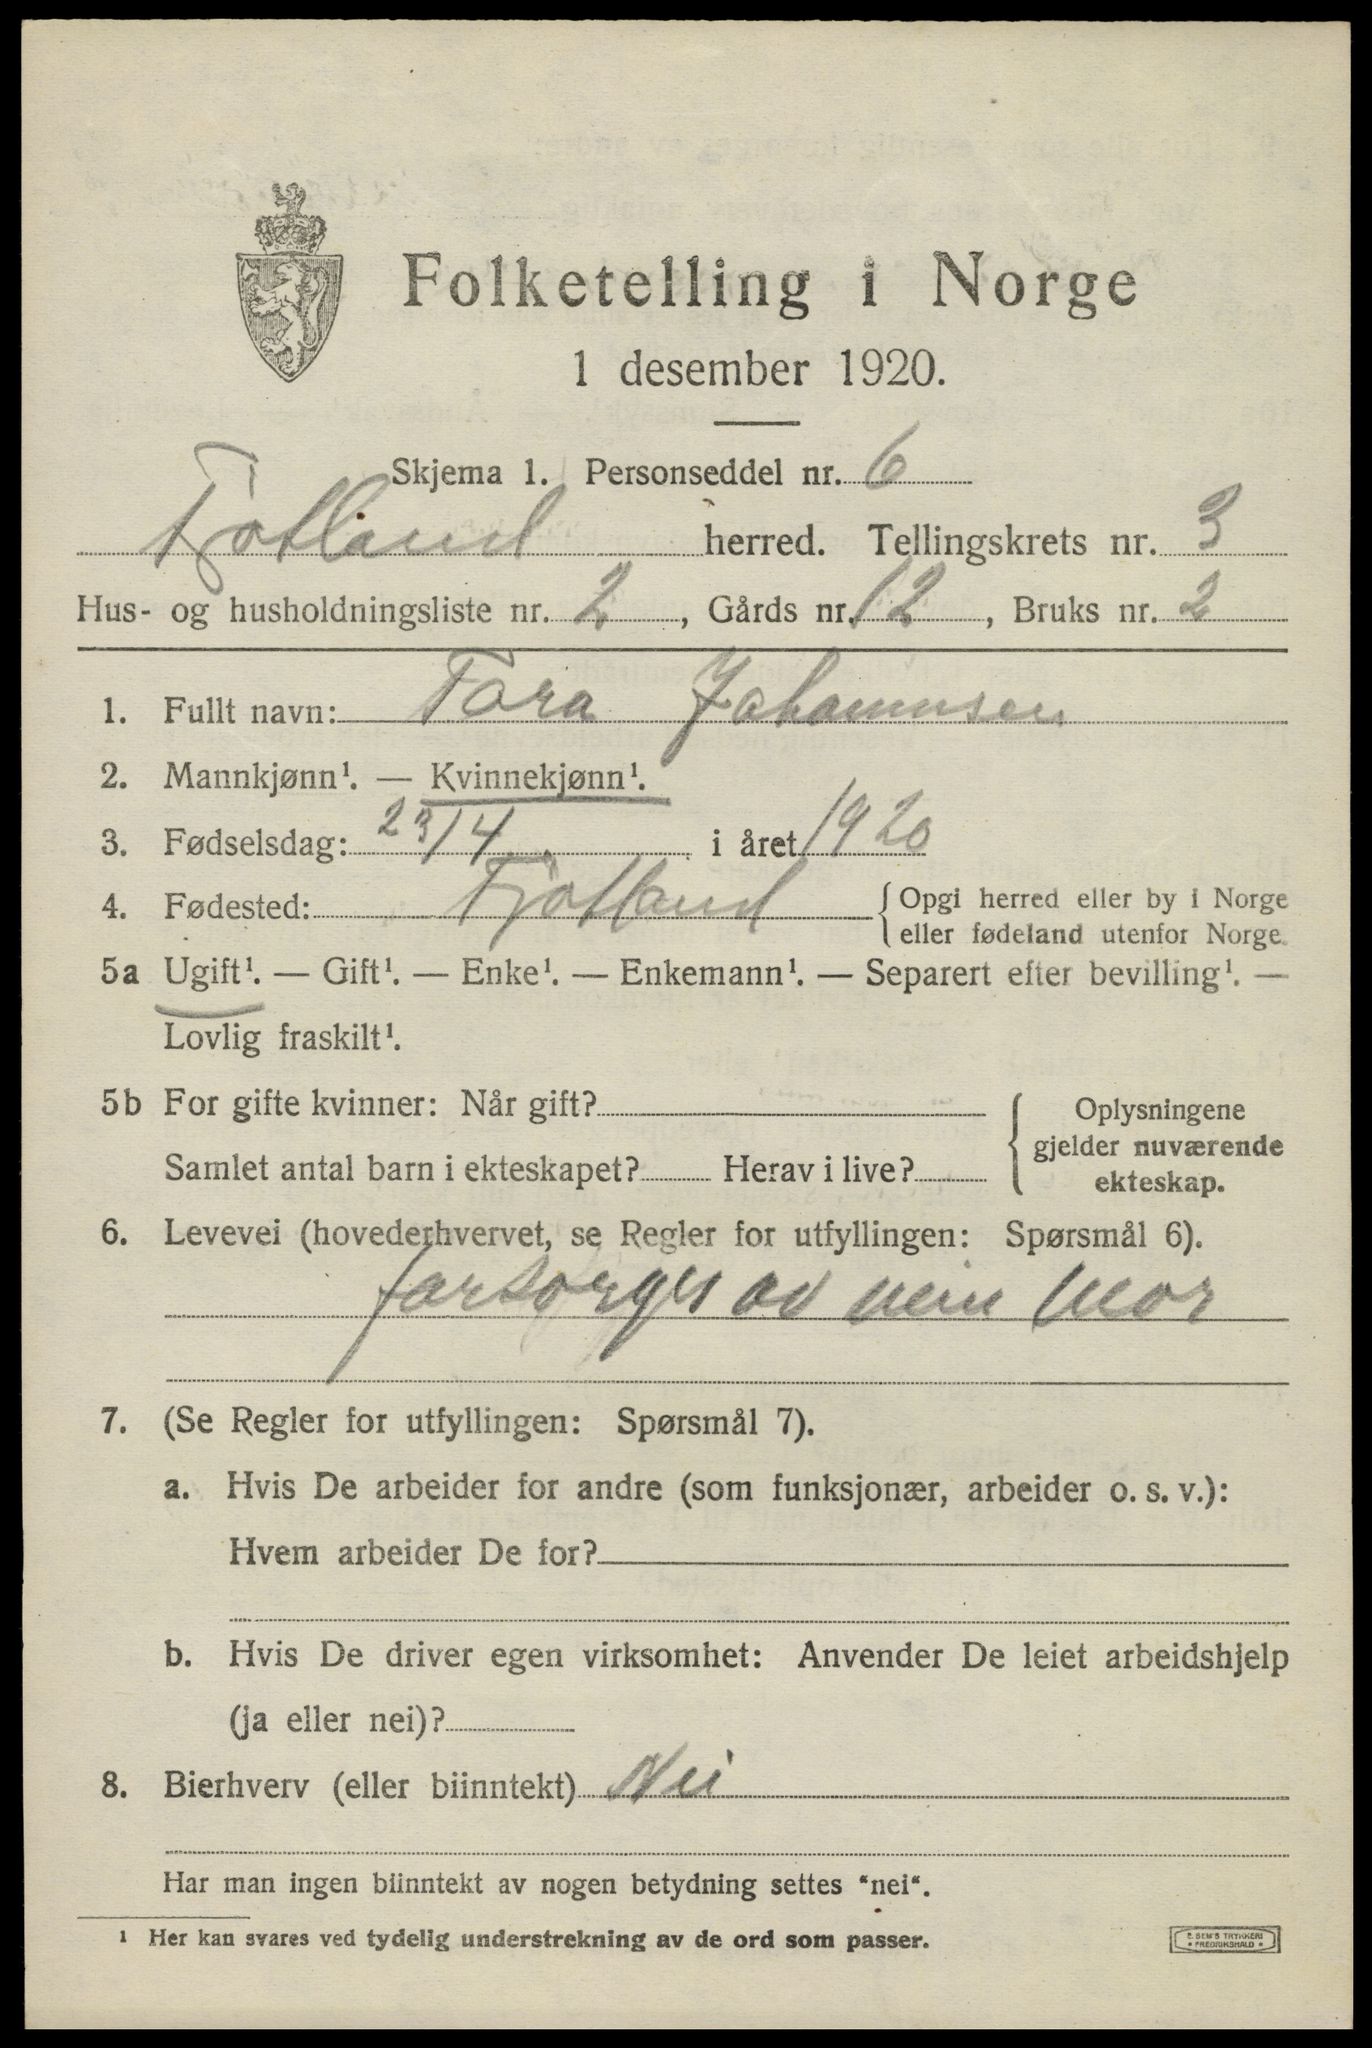 Folketelling i Norge
1 desember 1920.
Skjema 1. Personseddel nr. 6
Fjotland herred. Tellingskrets nr. 3
Hus- og husholdningsliste nr. 2, Gårds nr. 12, Bruks nr. 2
1. Fullt navn: Tora Johannsen
2. Mannkjønn¹. — Kvinnekjønn¹.
3. Fødselsdag: 23/4 i året 1920
4. Fødested: Fjotland {Opgi herred eller by i Norge
eller fødeland utenfor Norge.
5a Ugift¹. — Gift¹. — Enke¹. — Enkemann¹. — Separert efter bevilling¹. —
Lovlig fraskilt¹.
5b For gifte kvinner: Når gift?
Samlet antal barn i ekteskapet? Herav i live?
{Oplysningene
gjelder nuværende
ekteskap.
6. Levevei (hovederhvervet, se Regler for utfyllingen: Spørsmål 6).
forsorges av min Mor
7. (Se Regler for utfyllingen: Spørsmål 7).
a. Hvis De arbeider for andre (som funksjonær, arbeider o. s. v.):
Hvem arbeider De for?
b. Hvis De driver egen virksomhet: Anvender De leiet arbeidshjelp
(ja eller nei)?
8. Bierhverv (eller biinntekt) Nei
Har man ingen biinntekt av nogen betydning settes "nei".
¹ Her kan svares ved tydelig understrekning av de ord som passer.
E. SEM'S TRYKKERI
* FREDRIKSHALD *